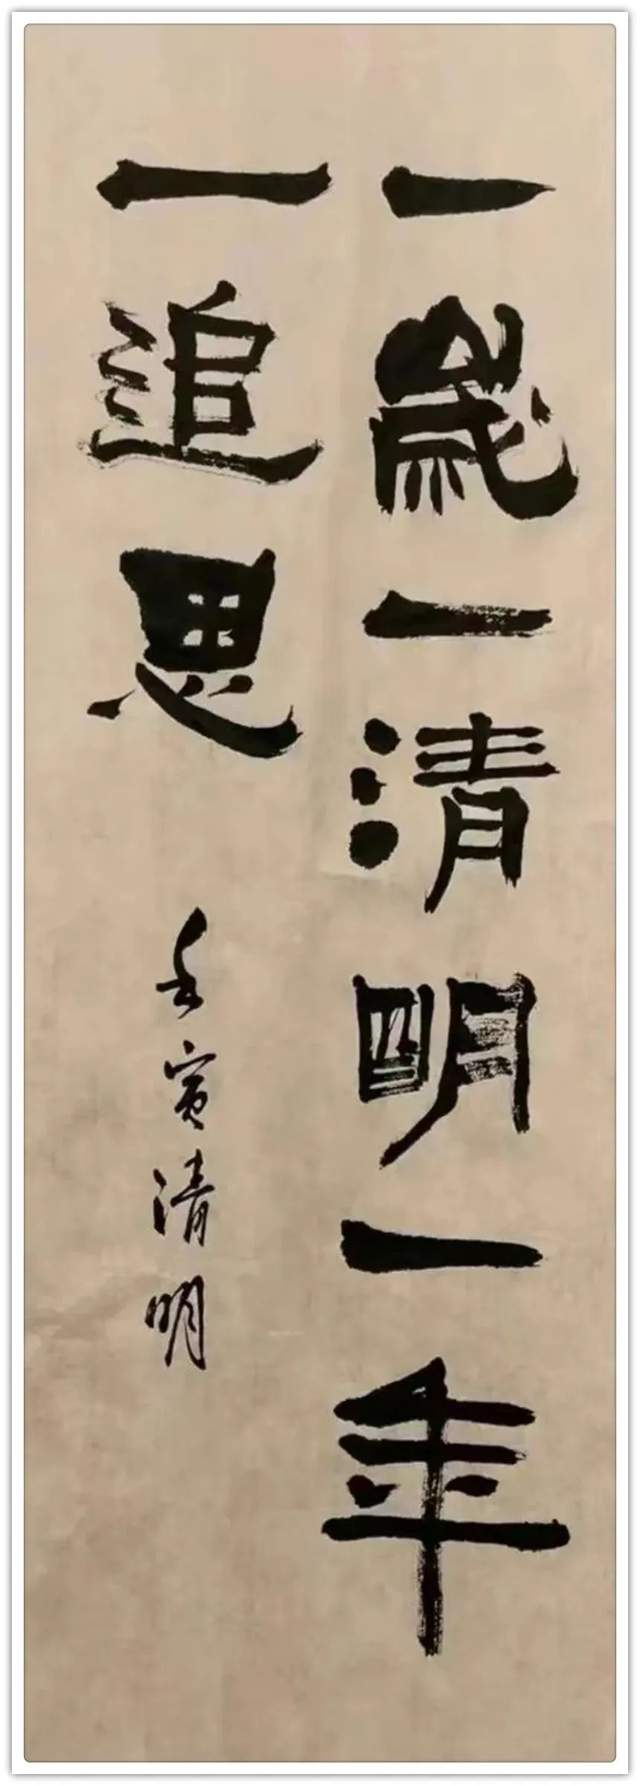 一歲一清明一年
一追思
壬寅清明